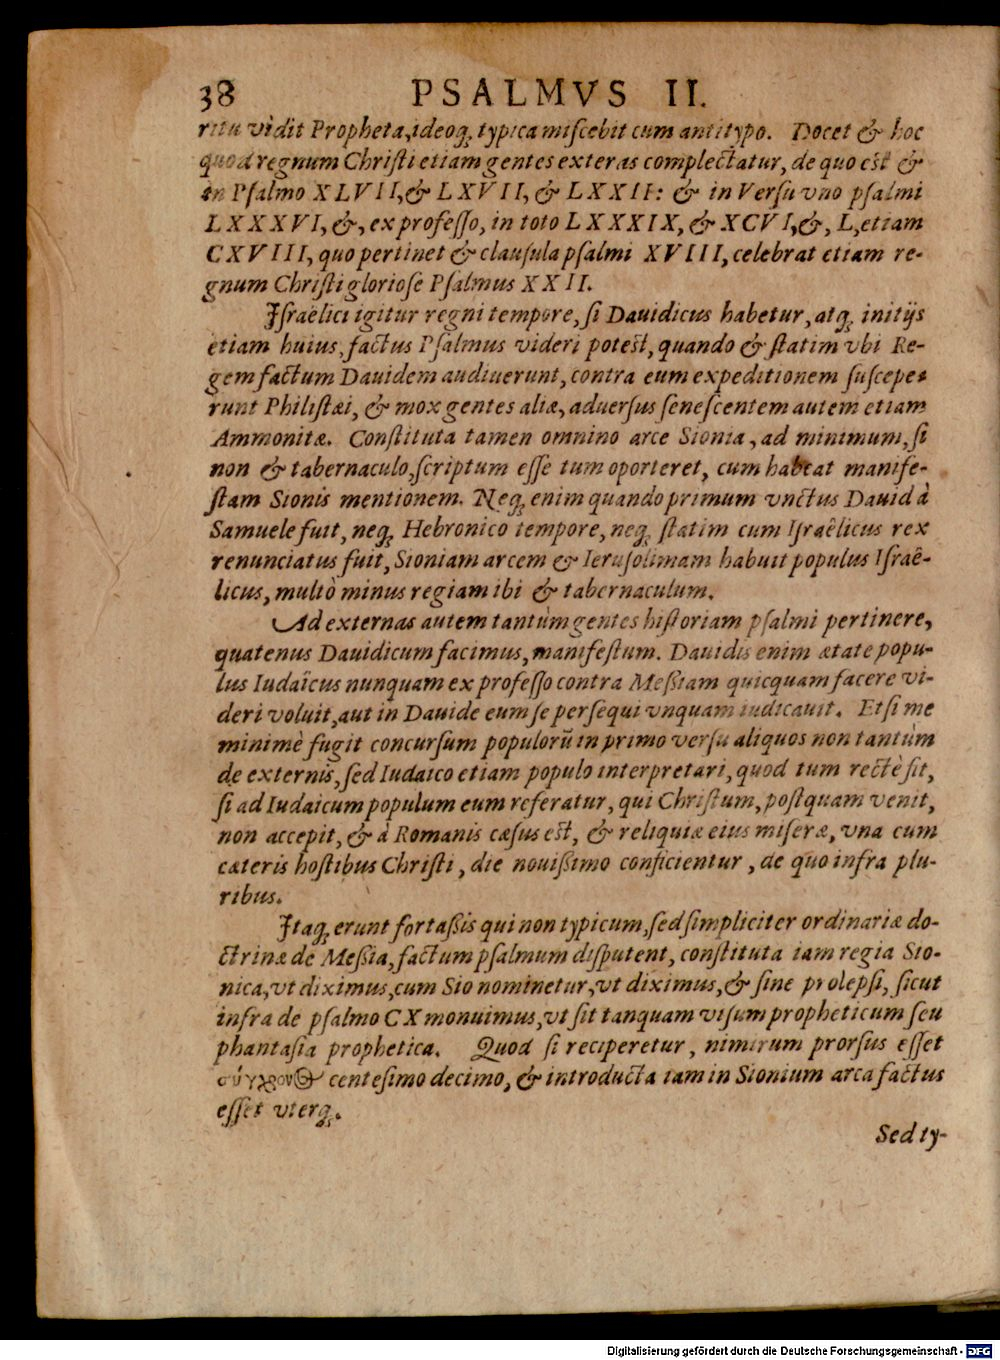 38 PSALMVS II.
ritu vìdit Propheta, ideoq́; typica miſcebit cum antitypo. Docet & hoc
quod regnum Chriſti etiam gentes exteras complectatur, de quo eſt &
in Pſalmo XLVII, & LXVII, & LXXII: & in Verſu vno pſalmi
LXXXVI, &, ex profeſſo, in toto LXXXIX, & XCVI, &, L, etiam
CXVIII, quo pertinet & clauſula pſalmi XVIII, celebrat etiam re-
gnum Chriſti glorioſe Pſalmus XXII.
Iſraëlici igitur regni tempore, ſi Dauidicus habetur, atq́; initijs
etiam huius, factus Pſalmus videri poteſt, quando & ſtatim vbi Re-
gem factum Dauidem audiuerunt, contra eum expeditionem ſuſcepe-
runt Philiſtæi, & mox gentes aliæ, aduerſus ſeneſcentem autem etiam
Ammonitæ. Conſtituta tamen omnino arce Sionia, ad minimum, ſi
non & tabernaculo, ſcriptum eſſe tum oporteret, cum habeat manife-
ſtam Sionis mentionem. Neq́; enim quando primum vnctus Dauid à
Samuele fuit, neq́; Hebronico tempore, neq́; ſtatim cum Iſraêlicus rex
renunciatus fuit, Sioniam arcem & Ieruſolimam habuit populus Iſraê-
licus, multò minus regiam ibi & tabernaculum.
Ad externas autem tantùm gentes hiſtoriam pſalmi pertinere,
quatenus Dauidicum facimus, manifeſtum. Dauidis enim ætate popu-
lus Iudaïcus nunquam ex profeſſo contra Meſsiam quicquam facere vi-
deri voluit, aut in Dauide eum ſe perſequi vnquam iudicauit. Etſi me
minimè fugit concurſum populorũ in primo verſu aliquos non tantùm
de externis, ſed Iudaico etiam populo interpretari, quod tum rectè fit,
ſi ad Iudaicum populum eum referatur, qui Chriſtum, poſtquam venit,
non accepit, & à Romanis cæſus eſt, & reliquiæ eius miſeræ, vna cum
cæteris hoſtibus Chriſti, die nouiſsimo conficientur, de quo infra plu-
ribus.
Itaq́; erunt fortaſsis qui non typicum, ſed ſimpliciter ordinariæ do-
ctrinæ de Meſsia, factum pſalmum diſputent, conſtituta iam regia Sio-
nica, vt diximus, cum Sio nominetur, vt diximus, & ſine prolèpſi, ſicut
infra de pſalmo CX monuimus, vt ſit tanquam viſum propheticum ſeu
phantaſia prophetica. Quod ſi reciperetur, nimirum prorſus eſſet
σύγχρονος centeſimo decimo, & introducta iam in Sionium arca factus
eſſet vterq́;.
Sed ty-
Digitalisierung gefördert durch die Deutsche Forschungsgemeinschaft - DFG